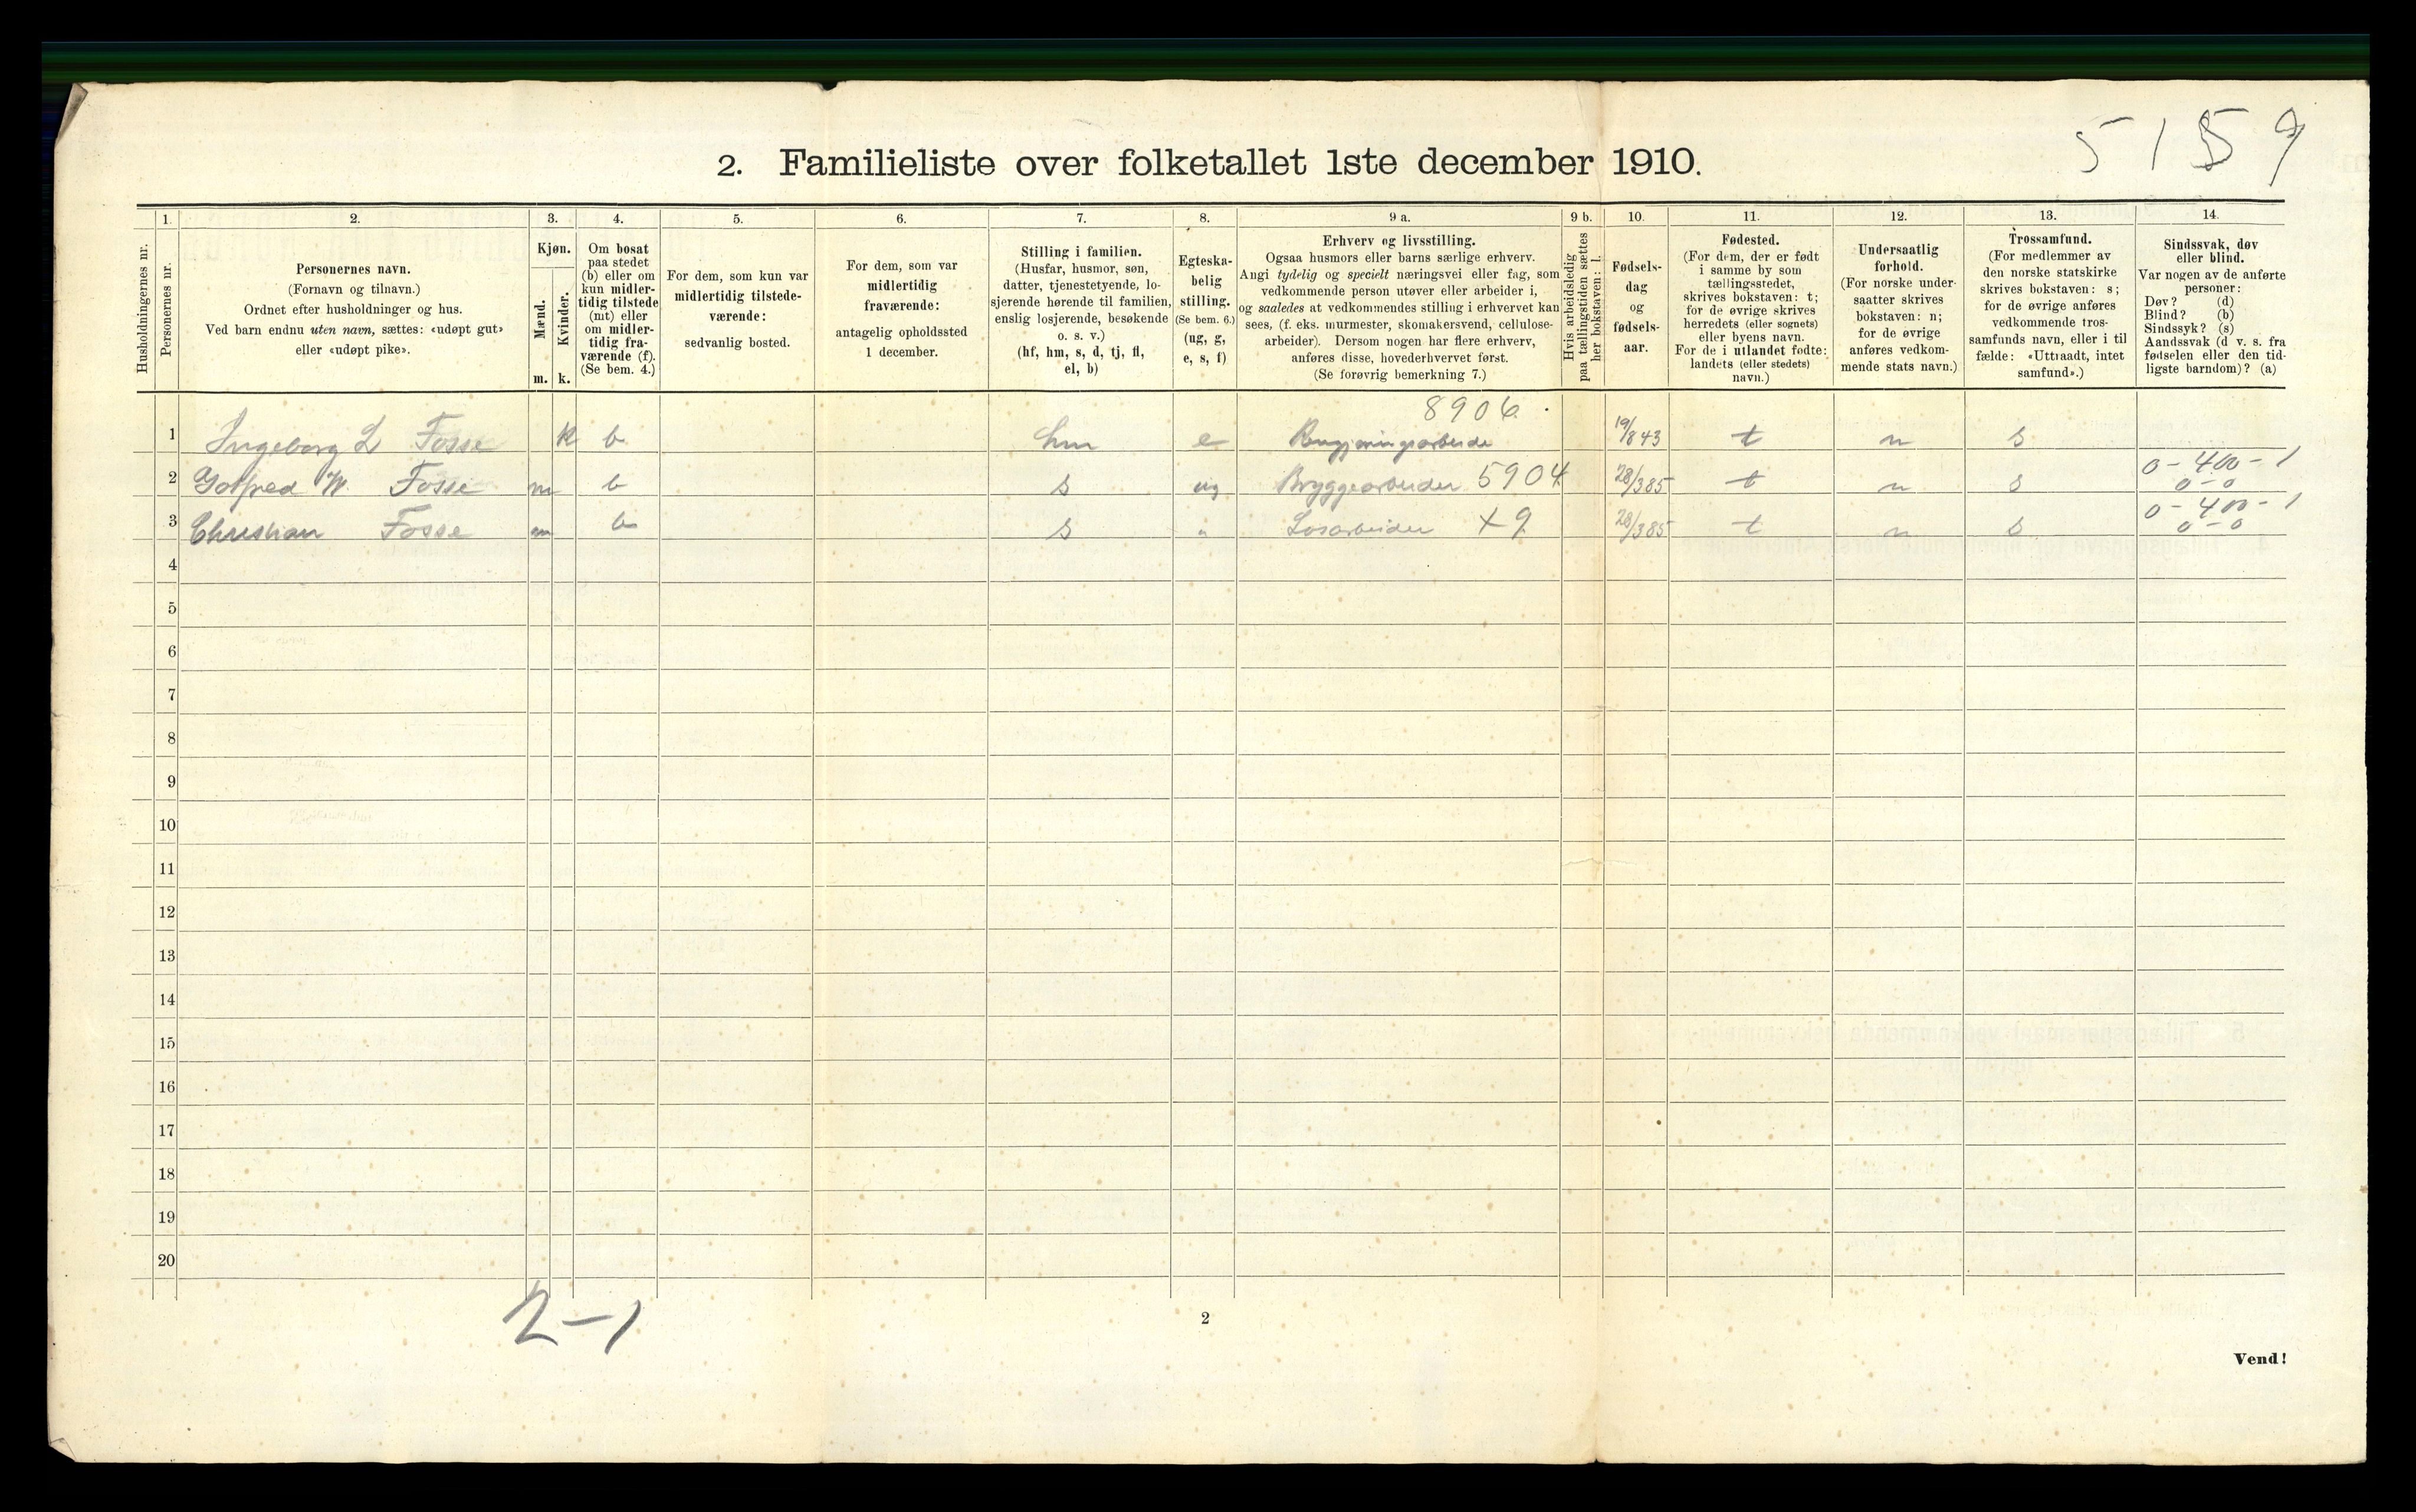 5159
2. Familieliste over folketallet 1ste december 1910.
Husholdningernes nr.
1.
Personernes nr.
2.
Personernes navn.
(Fornavn og tilnavn.)
Ordnet efter husholdninger og hus.
Ved barn endnu uten navn, sættes: «udøpt gut»
eller «udøpt pike».
3.
Kjøn.
Mænd.
m.
Kvinder.
k.
4.
Om bosat
paa stedet
(b) eller om
kun midler-
tidig tilstede
(mt) eller
om midler-
tidig fra-
værende (f).
(Se bem. 4.)
5.
For dem, som kun var
midlertidig tilstede-
værende:
sedvanlig bosted.
6.
For dem, som var
midlertidig
fraværende:
antagelig opholdssted
1 december.
7.
Stilling i familien.
(Husfar, husmor, søn,
datter, tjenestetyende, lo-
sjerende hørende til familien,
enslig losjerende, besøkende
o. s. v.)
(hf, hm, s, d, tj, fl,
el, b)
8.
Egteska-
belig
stilling.
(Se bem. 6.)
(ug, g,
e, s, f)
9 a.
Erhverv og livsstilling.
Ogsaa husmors eller barns særlige erhverv.
Angi tydelig og specielt næringsvei eller fag, som
vedkommende person utøver eller arbeider i,
og saaledes at vedkommendes stilling i erhvervet kan
sees, (f. eks. murmester, skomakersvend, cellulose-
arbeider). Dersom nogen har flere erhverv,
anføres disse, hovederhvervet først.
(Se forøvrig bemerkning 7.)
9 b.
Hvis arbeidsledig
paa tællingstiden sættes
her bokstaven: l.
10.
Fødsels-
dag
og
fødsels-
aar.
11.
Fødested.
(For dem, der er født
i samme by som
tællingsstedet,
skrives bokstaven: t;
for de øvrige skrives
herredets (eller sognets)
eller byens navn.
For de i utlandet fødte:
landets (eller stedets)
navn.)
12.
Undersaatlig
forhold.
(For norske under-
saatter skrives
bokstaven: n;
for de øvrige
anføres vedkom-
mende stats navn.)
13.
Trossamfund.
(For medlemmer av
den norske statskirke
skrives bokstaven: s;
for de øvrige anføres
vedkommende tros-
samfunds navn, eller i til
fælde: «Uttraadt, intet
samfund».)
14.
Sindssvak, døv
eller blind.
Var nogen av de anførte
personer:
Døv? (d)
Blind? (b)
Sindssyk? (s)
Aandssvak (d v. s. fra
fødselen eller den tid-
ligste barndom)? (a)
8906.
1 Ingeborg L Fosse k b hm e Rengjøringsarbeide 19/8 43 t n s
2 Gotfred W. Fosse m b s ug Bryggearbeider 5904 28/3 85 t n s 0-400-1
0-0
3 Christian Fosse m b s " Løsarbeider X9 28/3 85 t n s 0-400-1
0-0
4
5
6
7
8
9
10
11
12
13
14
15
16
17
18
19
20
2-1
2
Vend!